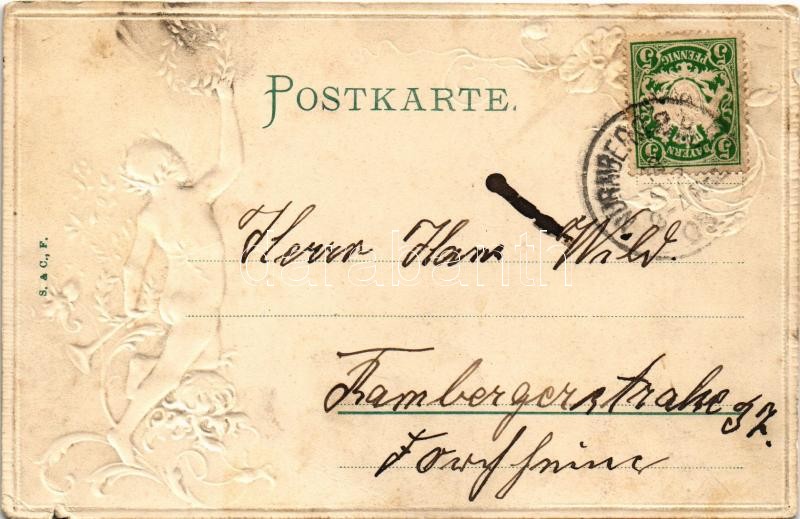 POSTKARTE.
5 PFENNIG 5
5 BAYERN 5
NÜRNBERG
S. & C., F.
Herrn Hans Wild.
Bambergerstraße 37.
Forchheim
darabanth